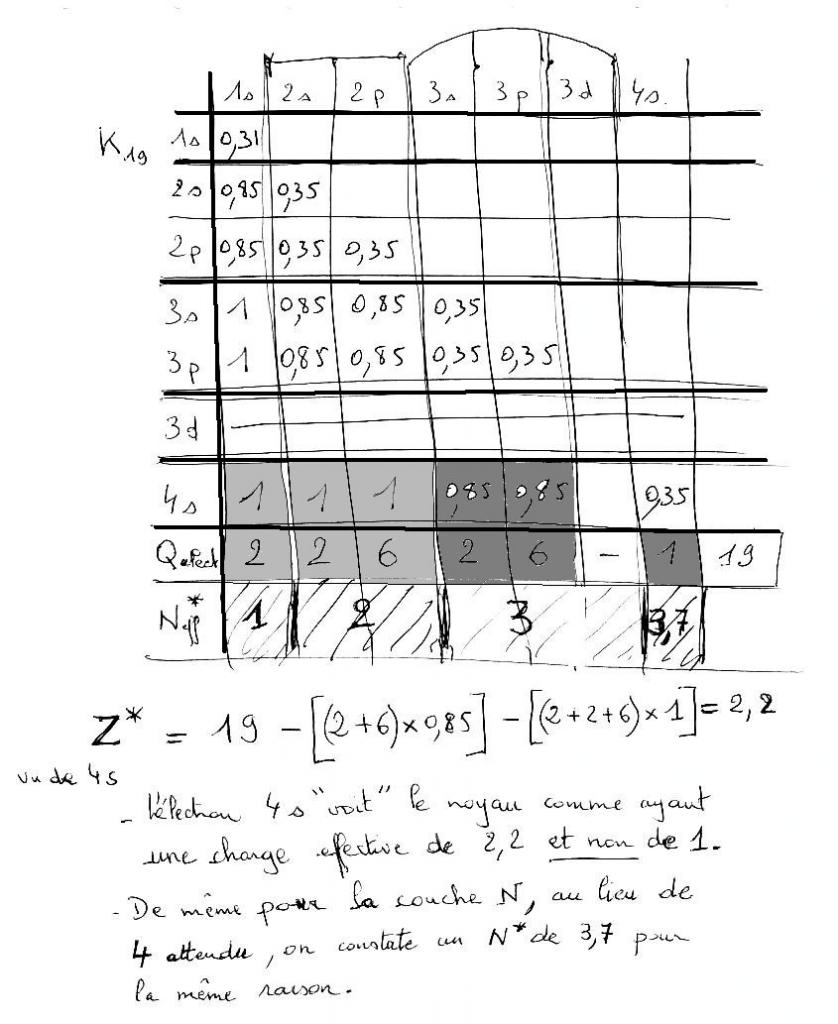 1s 2s 2p 3s 3p 3d 4s
K19 1s 0,31
2s 0,85 0,35
2p 0,85 0,35 0,35
3s 1 0,85 0,85 0,35
3p 1 0,85 0,85 0,35 0,35
3d
4s 1 1 1 0,85 0,85 0,35
2 2 6 2 6 - 1 19
Neff* 1 2 3 3,7
Z* = 19 - [(2+6)×0,85] - [(2+2+6)×1] = 2,2
vu de 4s
- l'électron 4s "voit" le noyau comme ayant
une charge effective de 2,2 et non de 1.
- De même pour la couche N, au lieu de
4 attendu, on constate un N* de 3,7 pour
la même raison.